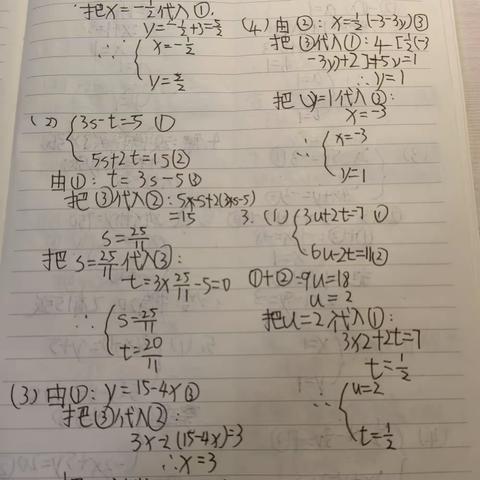 把x=-1/2代入①.
y=-1/2+3=5/2
∴{x=-1/2
y=5/2
(2){3s-t=5 ①
5s+2t=15②
由①:t=3s-5③
把③代入②:
=15
s=25/11
把s=25/11代入③:
t=3×25/11-5=0
∴{s=25/11
t=20/11
(3)由①:y=15-4x③
把③代入②:
3x-2(15-4x)=3
∴x=3
(4)由②:x=1/2(-3-3y)③
把③代入①:4[1/2(-3
-3y)+2]+5y=1
∴y=1
把y=1代入③:
x=-3
∴{x=-3
y=1
3.(1){3u+2t=7 ①
6u-2t=11②
①+②=9u=18
u=2
把u=2代入①:
3×2+2t=7
t=1/2
∴{u=2
t=1/2